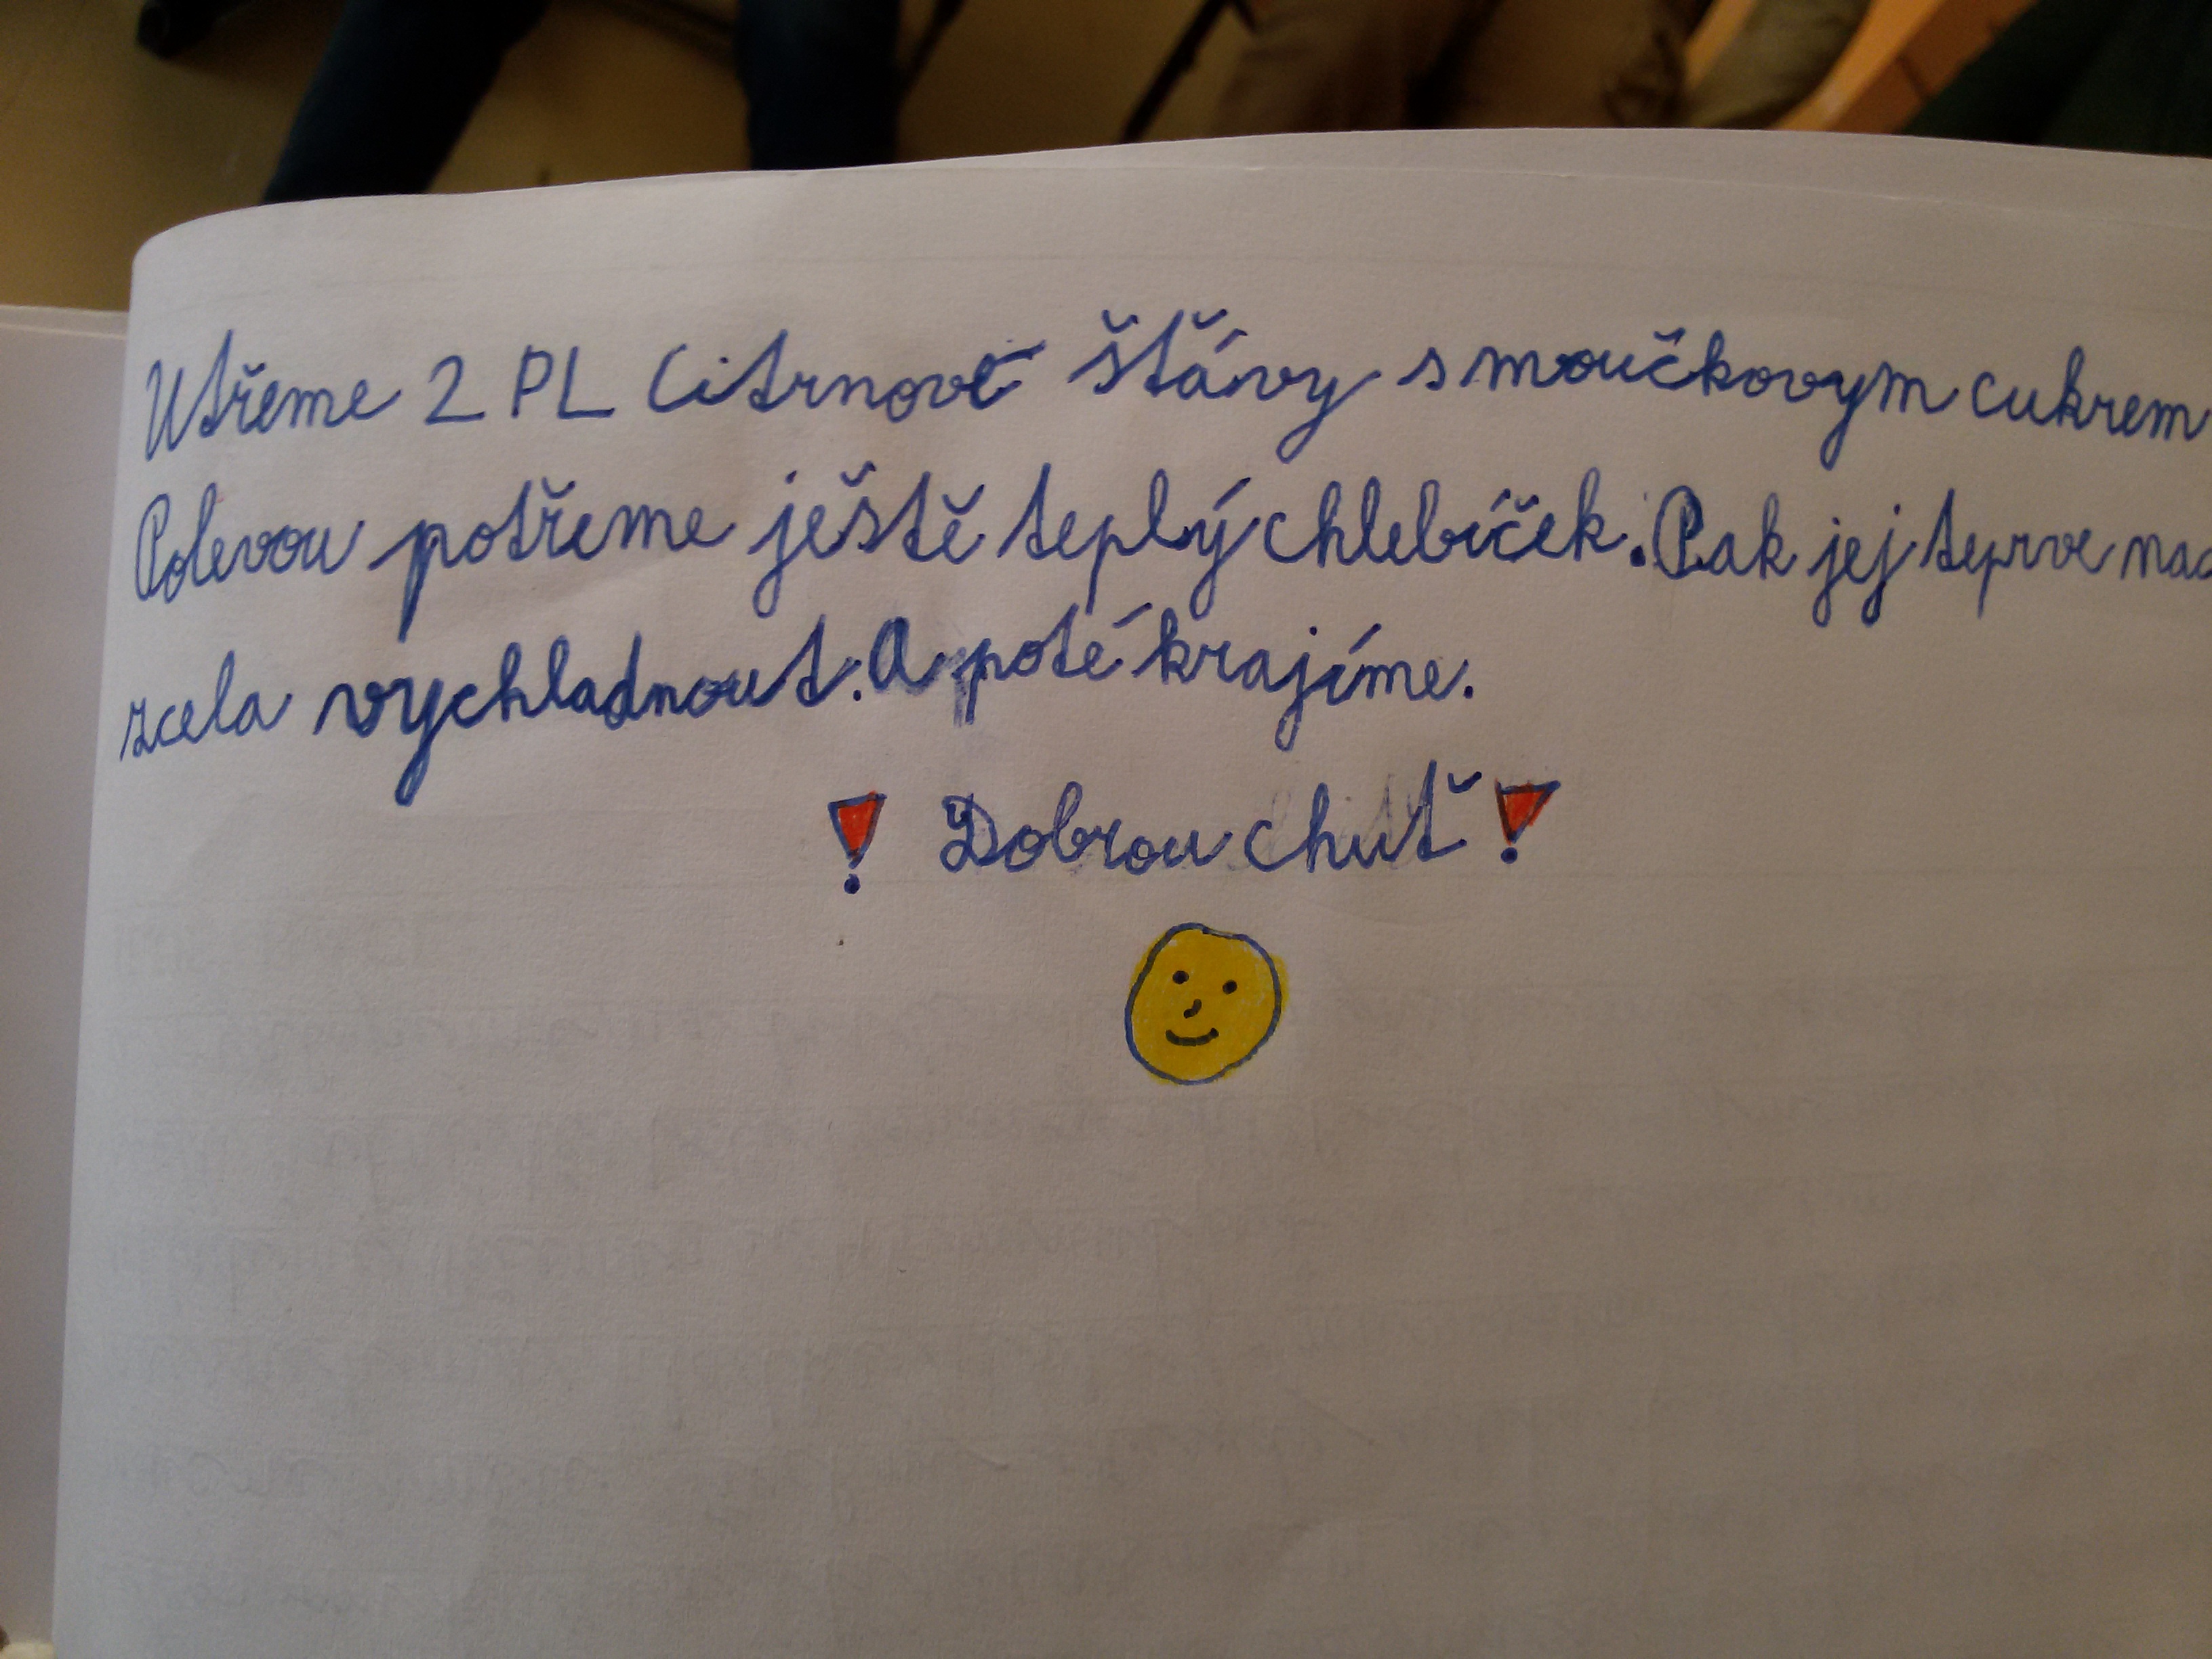 Utřeme 2 PL Citrnové šťávy s moučkovym cukrem
Polevou potřeme ještě teplý chlebíček. Pak jej teprve
zcela vychladnout. A poté krajíme.
! Dobrou chuť !